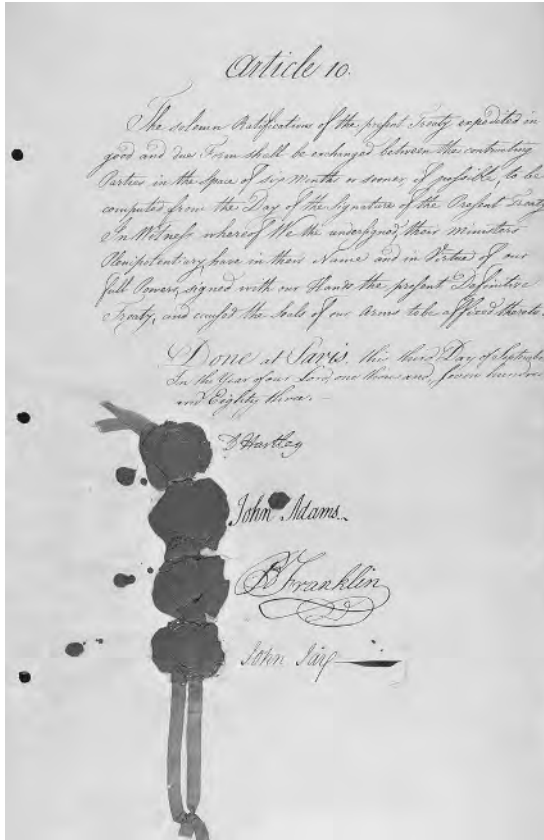 Article 10.
The solemn Ratifications of the present Treaty expedited in
good and due Form shall be exchanged between the contracting
Parties in the Space of Six Months or sooner, if possible, to be
computed from the Day of the Signature of the Present Treaty
In Witness whereof We the undersigned, their Ministers
Plenipotentiary have in their Name and in Virtue of our
full Powers, signed with our Hands the present Definitive
Treaty, and caused the Seals of our Arms to be affixed thereto.
Done at Paris, this third Day of Septembe
In the Year of our Lord, one thousand, seven hundre
and Eighty three.—
D Hartley
John Adams.
B Franklin
John Jay